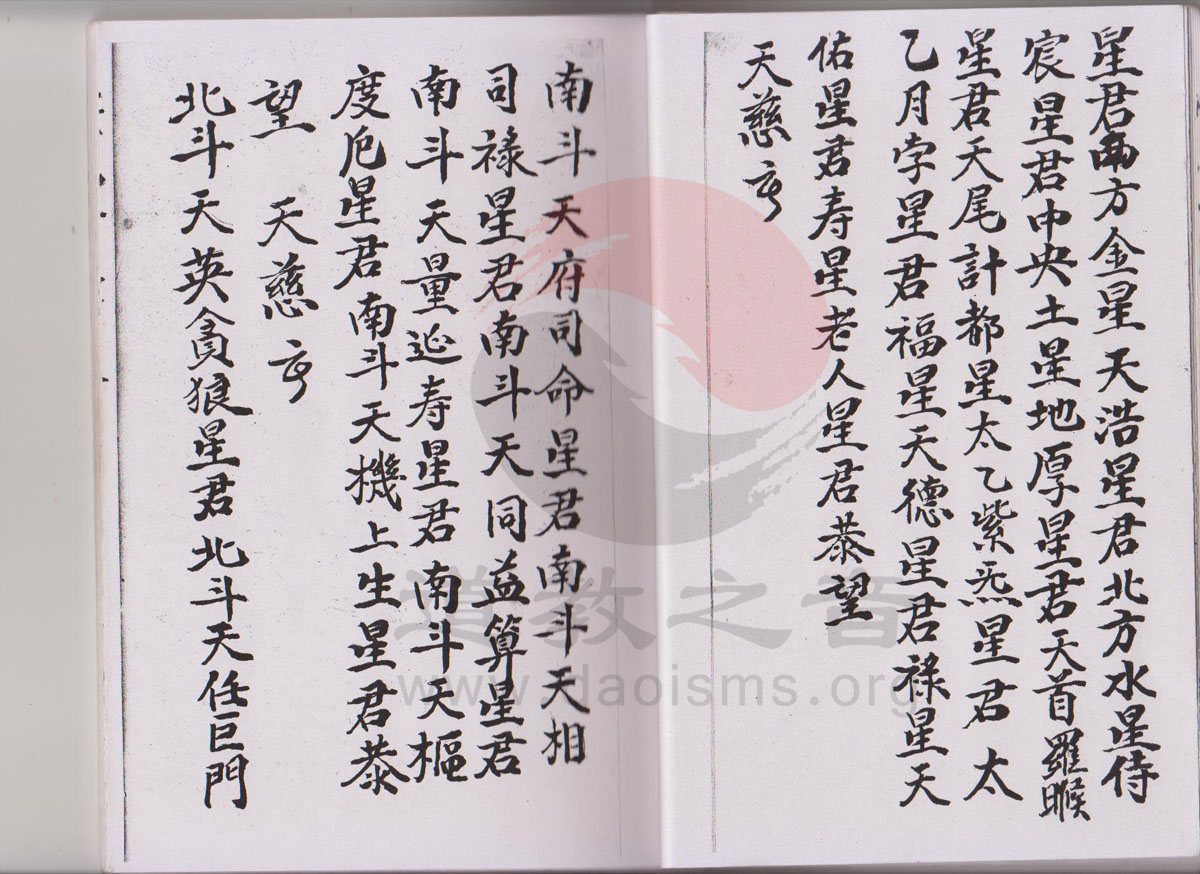 星君西方金星天浩星君北方水星侍
宸星君中央土星地厚星君天首羅睺
星君天尾計都星太乙紫炁星君太
乙月孛星君福星天德星君祿星天
佑星君寿星老人星君恭望
天慈
南斗天府司命星君南斗天相
司祿星君南斗天同益算星君
南斗天量延寿星君南斗天樞
度厄星君南斗天機上生星君恭
望 天慈
北斗天英貪狼星君北斗天任巨門
道教之音
www.daoisms.org